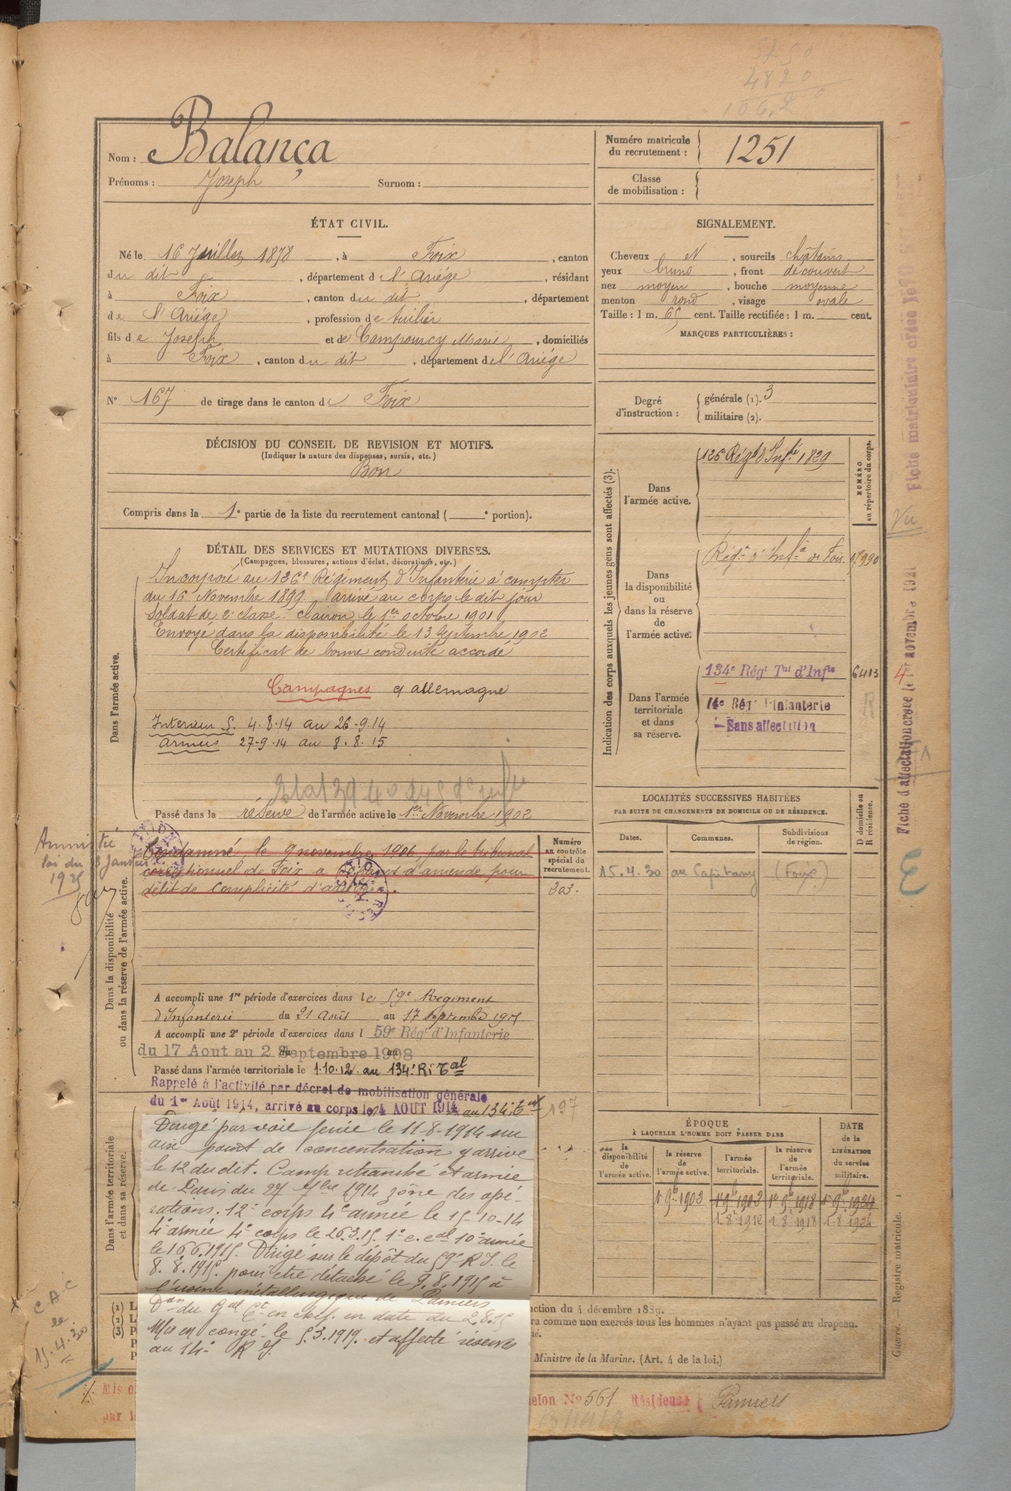 Nom : Balança
Prénoms : Joseph Surnom :
Numéro matricule du recrutement : 1251
Classe de mobilisation :
ÉTAT CIVIL.
Né le 16 Juillet 1878, à Foix, canton
du dit, département de l'Ariège, résidant
à Foix, canton du dit, département
de l'Ariège, profession de tuilier
fils de Joseph et de Campourcy Marie, domiciliés
à Foix, canton du dit, département de l'Ariège
N° 167 de tirage dans le canton de Foix
SIGNALEMENT.
Cheveux N, sourcils châtains
yeux bruns, front découvert
nez moyen, bouche moyenne
menton rond, visage ovale
Taille : 1 m. 65 cent. Taille rectifiée : 1 m. cent.
MARQUES PARTICULIÈRES :
Degré d'instruction : générale (1). 3
militaire (2).
DÉCISION DU CONSEIL DE REVISION ET MOTIFS.
(Indiquer la nature des dispenses, sursis, etc.)
Bon
Compris dans la 1e partie de la liste du recrutement cantonal ( e portion).
DÉTAIL DES SERVICES ET MUTATIONS DIVERSES.
(Campagnes, blessures, actions d'éclat, décorations, etc.)
Dans l'armée active.
Incorporé au 126e Régiment d'Infanterie à compter
du 16 Novembre 1899 arrivé au corps le dit jour
Soldat de 2e classe. Clairon le 1er octobre 1901
Envoyé dans la disponibilité le 13 septembre 1902
Certificat de bonne conduite accordé
Campagnes c/ allemagne
Intérieur S. 4-8-14 au 26-9-14
Armées 27-9-14 au 8.8.15
Passé dans la réserve de l'armée active le 1er Novembre 1902
Amnistié
loi du 3 Janvier
1925
Dans la disponibilité ou dans la réserve de l'armée active.
Condamné le 9 novembre 1906 par le tribunal
correctionnel de Foix à d'amende pour
délit de complicité
Numéro au contrôle spécial du recrutement.
303.
A accompli une 1re période d'exercices dans le 59e Régiment
d'Infanterie du 21 Août au 17 septembre 1905
A accompli une 2e période d'exercices dans l 59e Rég' d'Infanterie
du 17 Aout au 2 Septembre 1908
Passé dans l'armée territoriale le 1.10.12 au 134e R.I Tal
Rappelé à l'activité par décret de mobilisation générale
du 1er Août 1914, arrivé au corps le 4 AOUT 1914 au 134e
197
Dans l'armée territoriale et dans sa réserve.
Dirigé par voie ferrée le 11-8-1914 sur
un point de concentration y arrive
le 12 du dit. Camp retranché et armée
de Paris du 27 7bre 1914 zône des opé-
rations. 12e corps 4e armée le 15-10-14
4e armée 4e corps le 26.3.15. 10e armée
le 16.6.1915. Dirigé sur le dépôt du 59e R.I. le
8.8.1915 pour être détaché le 9.8.1915 à
l'usine métallurgique de Pamiers
du Gal en chef en date du 2.8.15
Mis en congé le 5.3.1919 et affecté réserve
au 14e R.I.
Indication des corps auxquels les jeunes gens sont affectés (3).
NUMÉRO au répertoire du corps.
Dans l'armée active.
126e Régt d'Infie
Dans la disponibilité ou dans la réserve de l'armée active.
Régt d'Infie de Foix
Dans l'armée territoriale et dans sa réserve.
134e Rég' Tal d'Infie 6413
14e Rég' d'Infanterie
Sans affectation
LOCALITÉS SUCCESSIVES HABITÉES
PAR SUITE DE CHANGEMENTS DE DOMICILE OU DE RÉSIDENCE.
Dates. Communes. Subdivisions de région. D domicile ou R résidence.
15.4.30 (Foix)
ÉPOQUE
À LAQUELLE L'HOMME DOIT PASSER DANS
la disponibilité de l'armée active.
la réserve de l'armée active.
l'armée territoriale.
la réserve de l'armée territoriale.
DATE de la LIBÉRATION du service militaire.
(1)
(2)
(3)
ction du 4 décembre 1889.
ra comme non exercés tous les hommes n'ayant pas passé au drapeau.
Ministre de la Marine. (Art. 4 de la loi.)
Guerre. Registre matricule.
elon N° 561 Résidence Pamiers
CAC
le
15.4.30
Vu